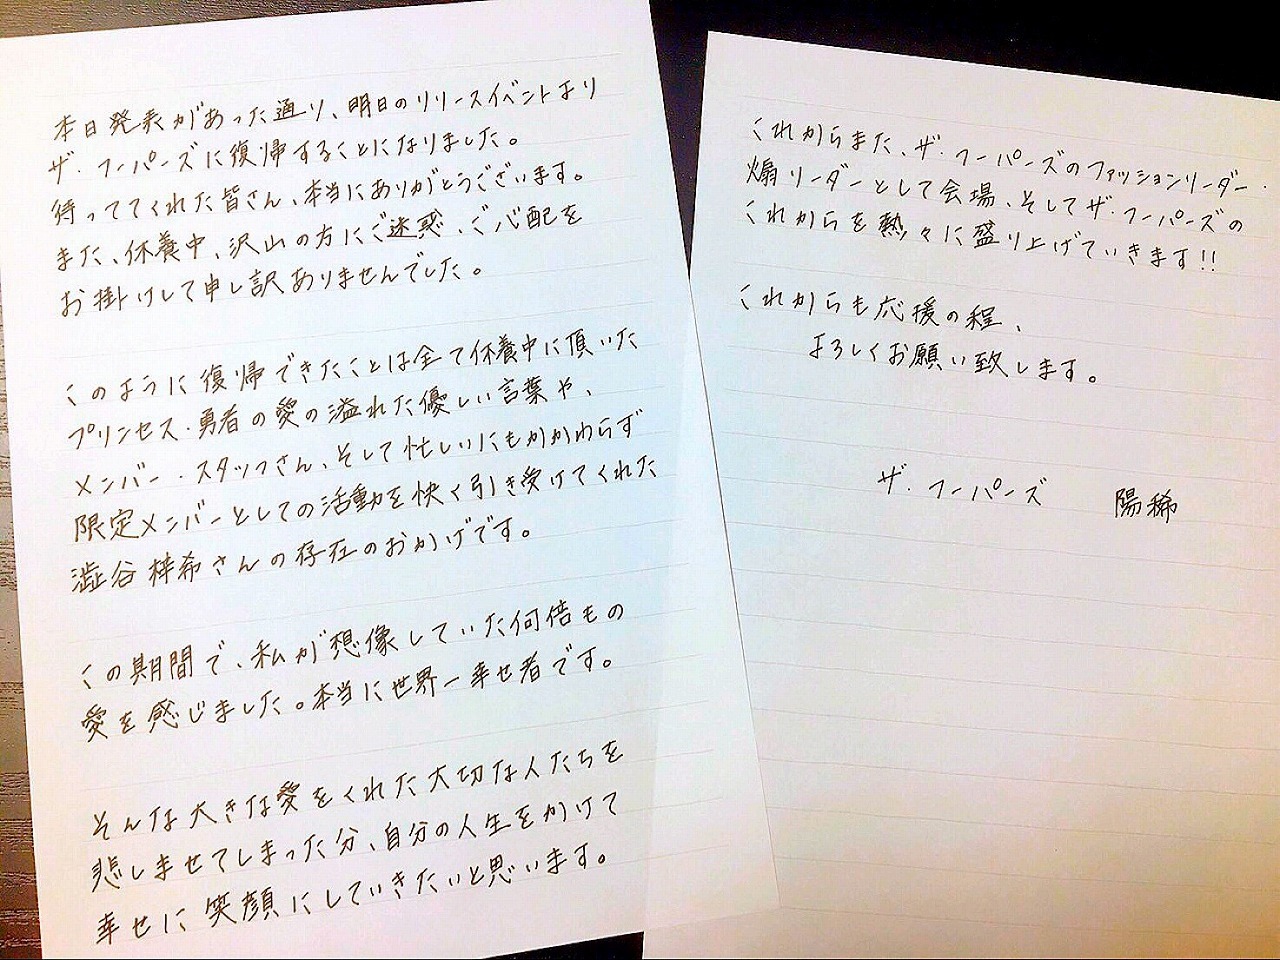 本日発表があった通り、明日のリリースイベントより
ザ・フーパーズに復帰することになりました。
待っててくれた皆さん、本当にありがとうございます。
また、休養中、沢山の方にご迷惑、ご心配を
お掛けして申し訳ありませんでした。
このように復帰できたことは全て休養中に頂いた
プリンセス・勇者の愛の溢れた優しい言葉や、
メンバー・スタッフさん、そして忙しいにもかかわらず
限定メンバーとしての活動を快く引き受けてくれた
澁谷梓希さんの存在のおかげです。
この期間で、私が想像していた何倍もの
愛を感じました。本当に世界一幸せ者です。
そんな大きな愛をくれた大切な人たちを
悲しませてしまった分、自分の人生をかけて
幸せに笑顔にしていきたいと思います。
これからまた、ザ・フーパーズのファッションリーダー・
煽リーダーとして会場、そしてザ・フーパーズの
これからを熱々に盛り上げていきます!!
これからも応援の程、
よろしくお願い致します。
ザ・フーパーズ 陽稀